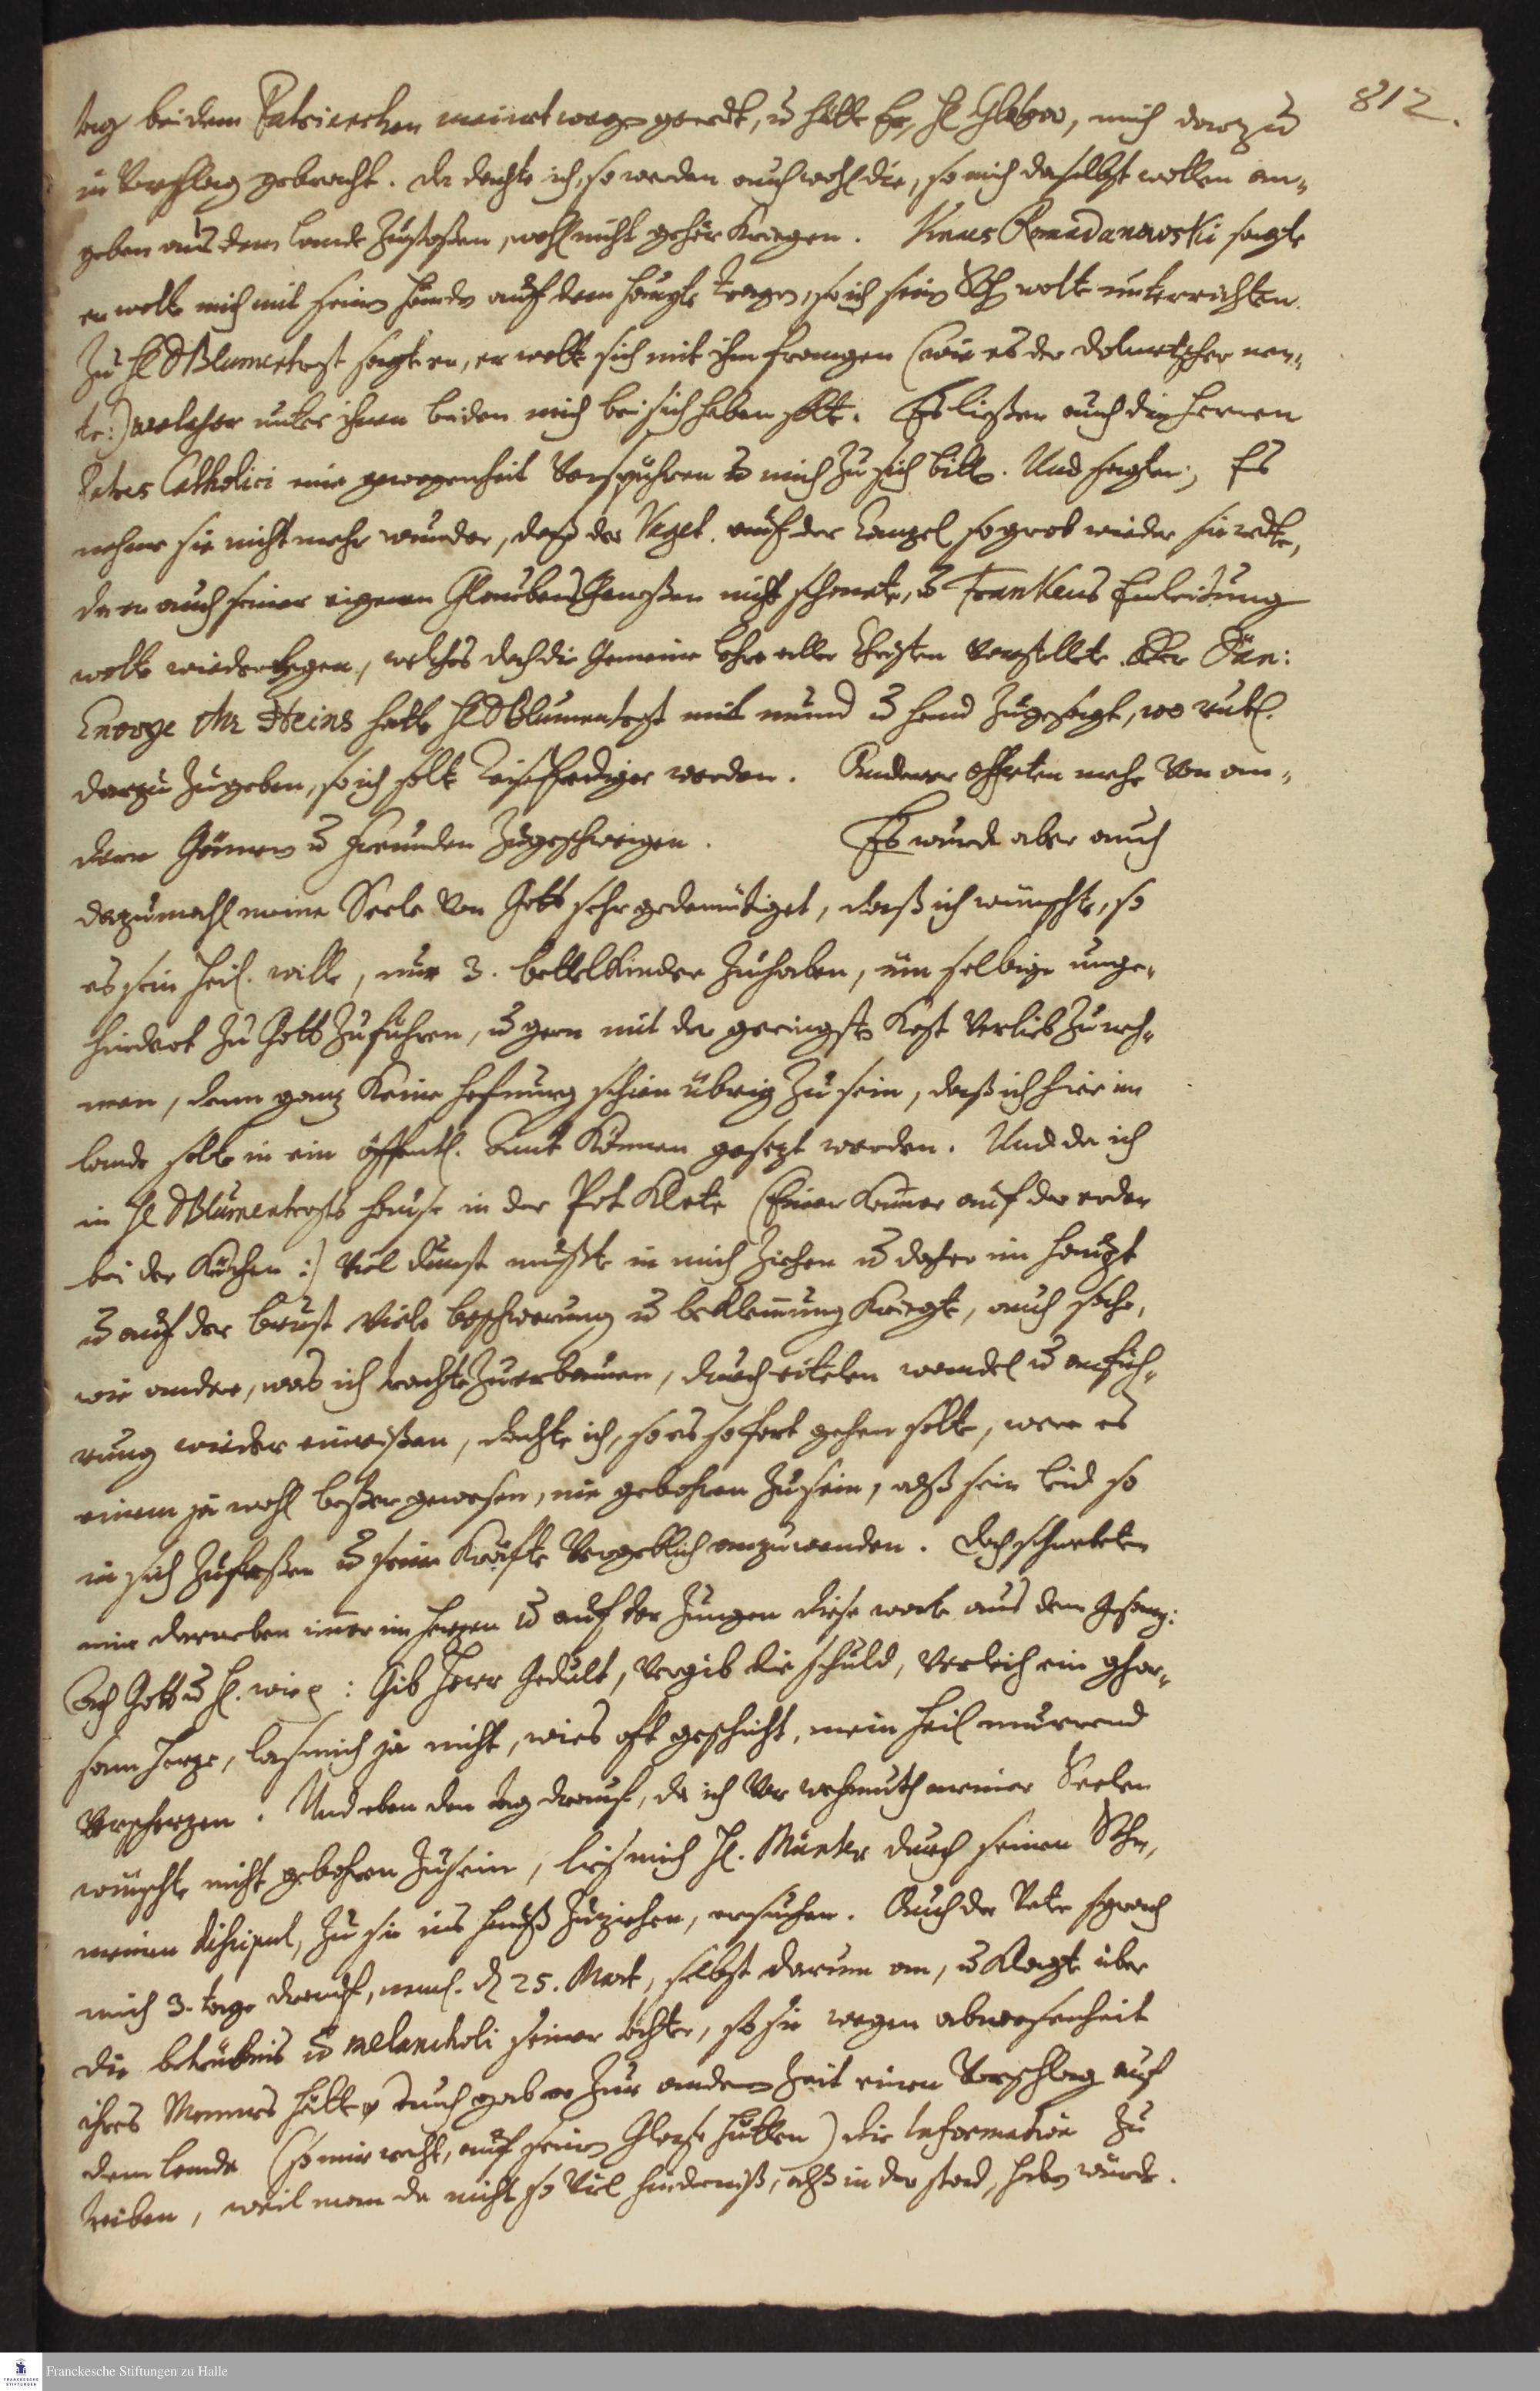 812.
tag bei dem Patriarchen meinetwegen geredt, u hätte Er, H Glebov, mich darzu
in Vorschlag gebracht. Da dachte ich, so werden auch wohl die, so mich daselbst wollen an-
geben aus dem Lande zustoßen, wohl nicht gehör kriegen. Kneus Romadanowski sagte
er wolte mich mit seinen Händen auf dem Haupte tragen, so ich sein Sohn wolte unterrichten.
Zu H D Blumentrost sagte er, er wolte sich mit ihm prangen (wie es der dolmetscher nen-
te:) welcher unter ihnen beiden mich bei sich haben solte. Es ließen auch die Herren
Patres Catholici eine gewogenheit verspühren u mich zu sich bitten. Und sagten, Es
nehme sie nicht mehr wunder, daß der Vaget. auf der Canzel so grob wieder sie redte,
da er auch seiner eigenen Glaubensgenoßen nicht schonete, u Frankens Einleitung
wolte wiederlegen, welches doch die Gemeine Lehre aller Christen vorstellete. Der Dän:
Envoye Mr Heins hatte H D Blumentrost mit mund u hand zugesagt, 100 rubl.
darzu zugeben, so ich solte Reiseprediger werden. Anderer offerten mehr von an-
dern Gönnern u Freunden zugeschweigen. Es wurde aber auch
dazumahl meine Seele von Gott sehr gedemütiget, daß ich wünschte, so
es sein heil. wille, nur 3. bettelkinder zuhaben, um selbige unge-
hindert zu Gott zuführen, u gern mit der geringsten Kost verlieb zu neh-
men, denn ganz keine hofnung schien übrig zu sein, daß ich hier im
lande solte in ein öffentl. Amt können gesezt werden. Und da ich
in H D Blumentrosts hause in der Pod Klete (Einer kamer auf der erden
bei der Küchen:) viel dunst mußte in mich ziehen u daher im haupt
u auf der brust viele beschwerung u beklemung kriegte, auch sahe,
wie andere, was ich trachte zu erbauen, durch eitelen wandel u anfüh-
rung wieder einreißen, dachte ich, so es so fort gehen solte, were es
einem ja wohl beßer gewesen, nie gebohren zu sein, alß sein leid so
in sich zufreßen u seine Kräfte vergeblich anzuwenden. Doch schwebeten
mir darneben imer im herzen u auf der Zungen diese worte aus dem Gesang:
Ach Gott u H. wie p: Gib Herr Gedult, vergib die schuld, verleih ein ghor-
sam herze, laß mich ja nicht, wies oft geschicht, mein heil murrend
verscherzen. Und eben den tag drauf, da ich vor wehmuth meiner Seelen
wünschte nicht gebohren zusein, ließ mich H. Münter durch seinen Sohn,
meinen discipul, zu sie ins hauß zuziehen, ersuchen. Auch der Vater sprach
mich 3. tage drauf, neml. d 25. Mart, selbst darum an, u klagte über
die betrübnis u melancholi seiner tochter, so sie wegen abwesenheit
ihres Mannes hätte, auch gab er zur andern Zeit einen Vorschlag auf
dem lande (so mir recht, auf seinen Glase hütten) die Information zu
treiben, weil man da nicht so viel hinderniß, alß in der stad, haben würde.
Franckesche Stiftungen zu Halle